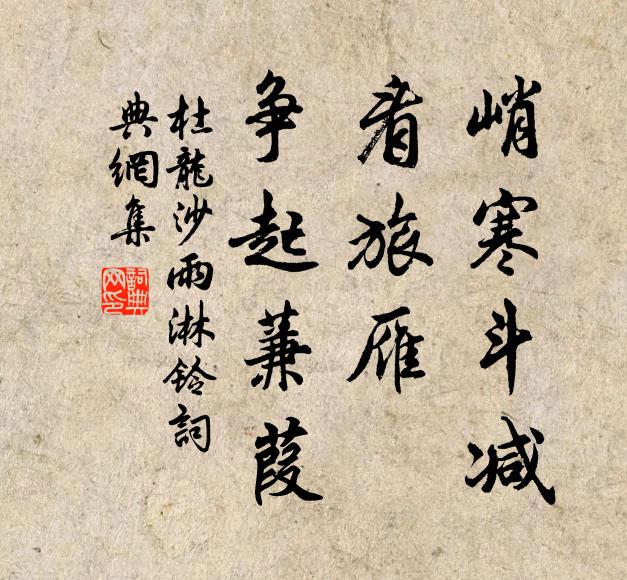 峭寒斗减
看旅雁
争起蒹葭
杜龍沙雨淋鈴詞
典網集
詞典網印